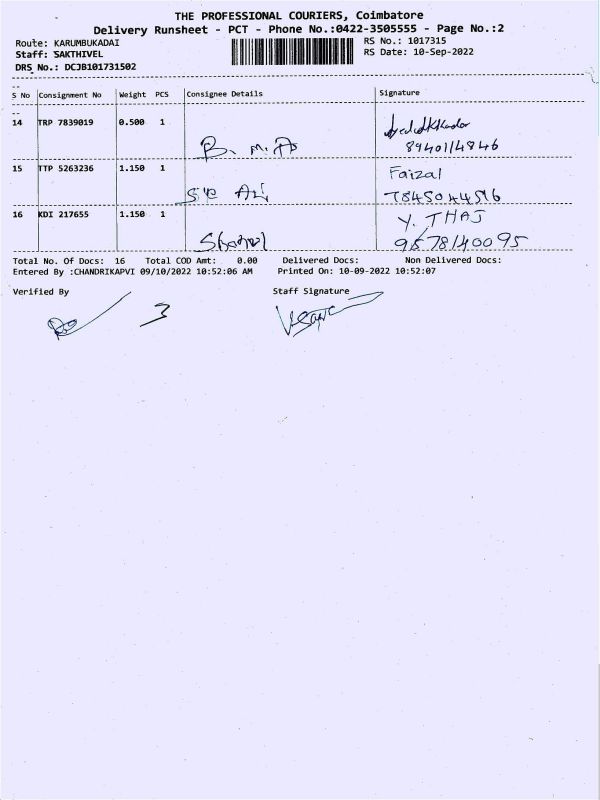 THE PROFESSIONAL COURIERS, Coimbatore
Delivery Runsheet - PCT - Phone No.:0422-3505555 - Page No.:2
Route: KARUMBUKADAI
RS No.: 1017315
Staff: SAKTHIVEL
RS Date: 10-Sep-2022
DRS No.: DCJB101731502
S No Consignment No Weight PCS Consignee Details Signature
14 TRP 7839019 0.500 1
B. M. A 8940114846
15 TTP 5263236 1.150 1 Faizal
Ali
16 KDI 217655 1.150 1 Y. THAJ
9578140095
Total No. Of Docs: 16 Total COD Amt: 0.00 Delivered Docs: Non Delivered Docs:
Entered By :CHANDRIKAPVI 09/10/2022 10:52:06 AM Printed On: 10-09-2022 10:52:07
Verified By Staff Signature
3